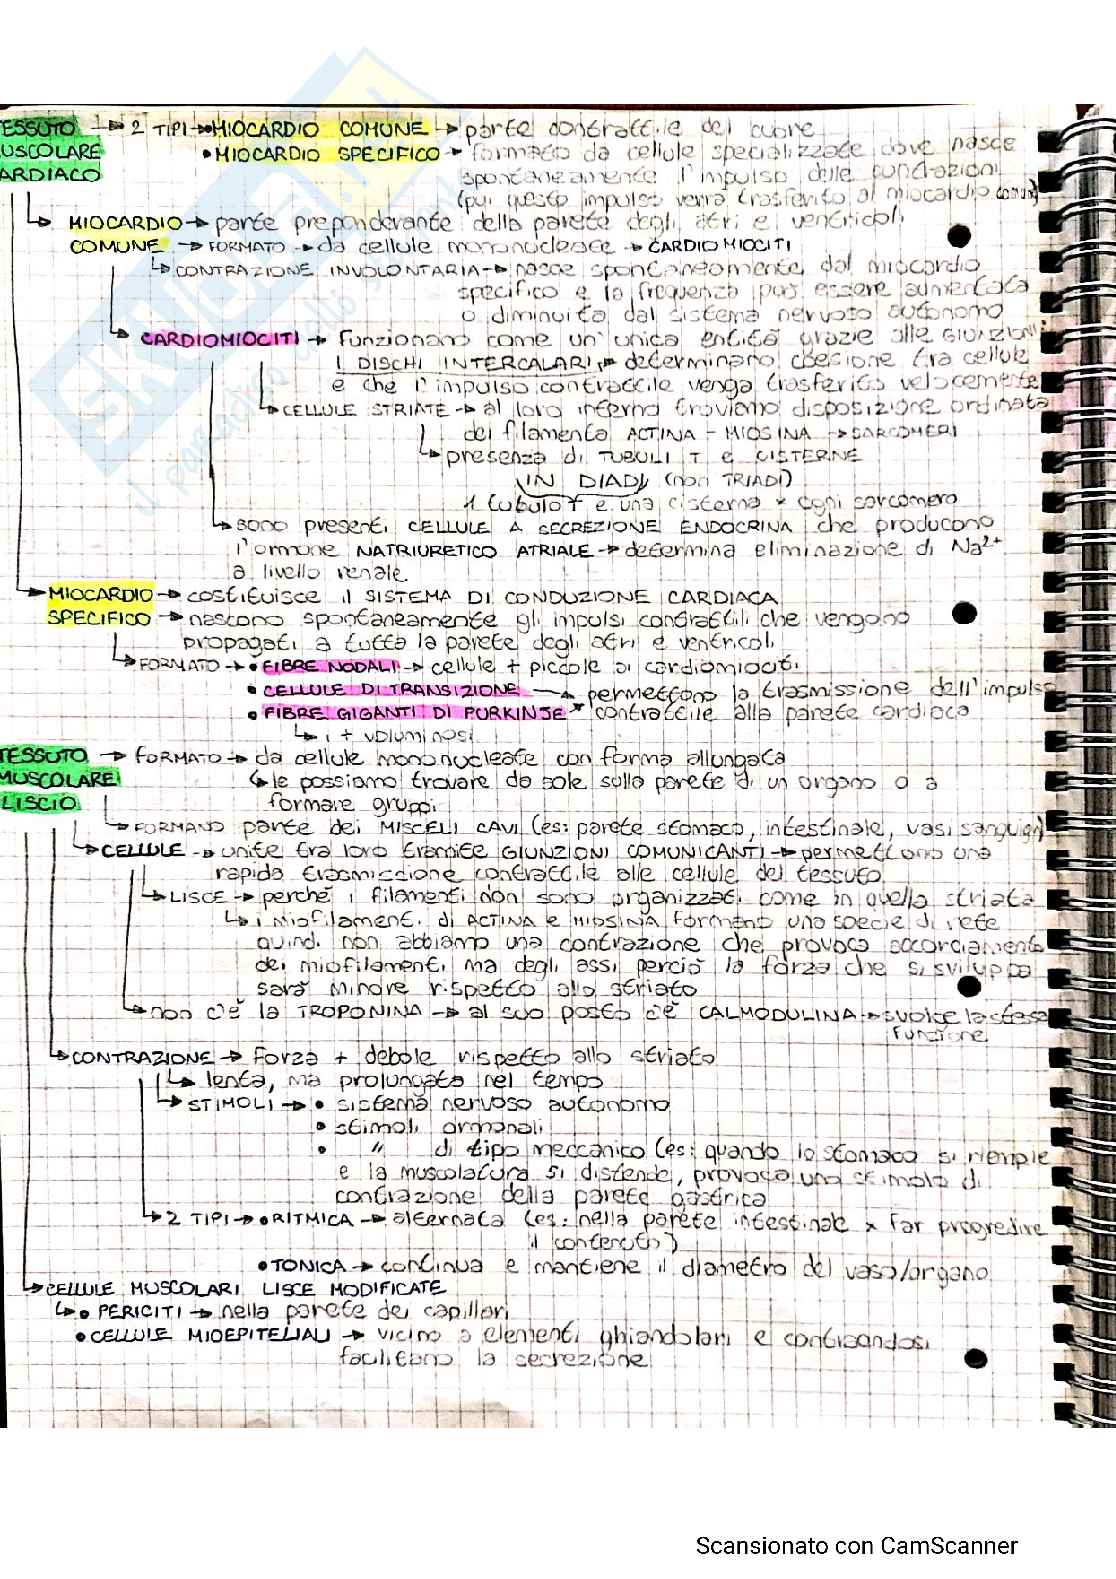 TESSUTO → 2 TIPI → • MIOCARDIO COMUNE → parte contrattile del cuore
MUSCOLARE • MIOCARDIO SPECIFICO → formato da cellule specializzate dove nasce
CARDIACO spontaneamente l'impulso delle contrazioni
(poi questo impulso verrà trasferito al miocardio comune)
MIOCARDIO → parte preponderante della parete degli atri e ventricoli
COMUNE → FORMATO → da cellule mononucleate → CARDIOMIOCITI
CONTRAZIONE INVOLONTARIA → nasce spontaneamente dal miocardio
specifico e la frequenza può essere aumentata
o diminuita dal sistema nervoso autonomo
CARDIOMIOCITI → funzionano come un'unica entità grazie alle GIUNZIONI
I DISCHI INTERCALARI → determinano coesione tra cellule
e che l'impulso contrattile venga trasferito velocemente
CELLULE STRIATE → al loro interno troviamo disposizione ordinata
dei filamenti ACTINA - MIOSINA → SARCOMERI
presenza di TUBULI T e CISTERNE
IN DIADI (non TRIADI)
1 tubulo T e una cisterna x ogni sarcomero
sono presenti CELLULE A SECREZIONE ENDOCRINA che producono
l'ormone NATRIURETICO ATRIALE → determina eliminazione di Na2+
a livello renale
MIOCARDIO → costituisce il SISTEMA DI CONDUZIONE CARDIACA
SPECIFICO → nascono spontaneamente gli impulsi contrattili che vengono
propagati a tutta la parete degli atri e ventricoli
FORMATO → • FIBRE NODALI → cellule + piccole di cardiomiociti
• CELLULE DI TRANSIZIONE → permettono la trasmissione dell'impulso
• FIBRE GIGANTI DI PURKINJE contrattile alla parete cardiaca
i + voluminosi
TESSUTO → FORMATO → da cellule mononucleate con forma allungata
MUSCOLARE le possiamo trovare da sole sulla parete di un organo o a
LISCIO formare gruppi
FORMANO parte dei MISCELI CAVI (es: parete stomaco, intestinale, vasi sanguigni)
CELLULE → unite tra loro tramite GIUNZIONI COMUNICANTI → permettono una
rapida trasmissione contrattile alle cellule del tessuto
LISCE → perché i filamenti non sono organizzati come in quella striata
i miofilamenti di ACTINA e MIOSINA formano una specie di rete
quindi non abbiamo una contrazione che provoca accorciamento
dei miofilamenti ma degli assi perciò la forza che si sviluppa
sarà minore rispetto allo striato
non c'è la TROPONINA → al suo posto c'è CALMODULINA → svolge la stessa
funzione
CONTRAZIONE → forza + debole rispetto allo striato
lenta, ma prolungata nel tempo
STIMOLI → • sistema nervoso autonomo
• stimoli ormonali
• " di tipo meccanico (es: quando lo stomaco si riempie
e la muscolatura si distende, provoca uno stimolo di
contrazione della parete gastrica
2 TIPI → • RITMICA → alternata (es: nella parete intestinale x far progredire
il contenuto)
• TONICA → continua e mantiene il diametro del vaso/organo
CELLULE MUSCOLARI LISCE MODIFICATE
• PERICITI → nella parete dei capillari
• CELLULE MIOEPITELIALI → vicino a elementi ghiandolari e contraendosi
facilitano la secrezione
Scansionato con CamScanner